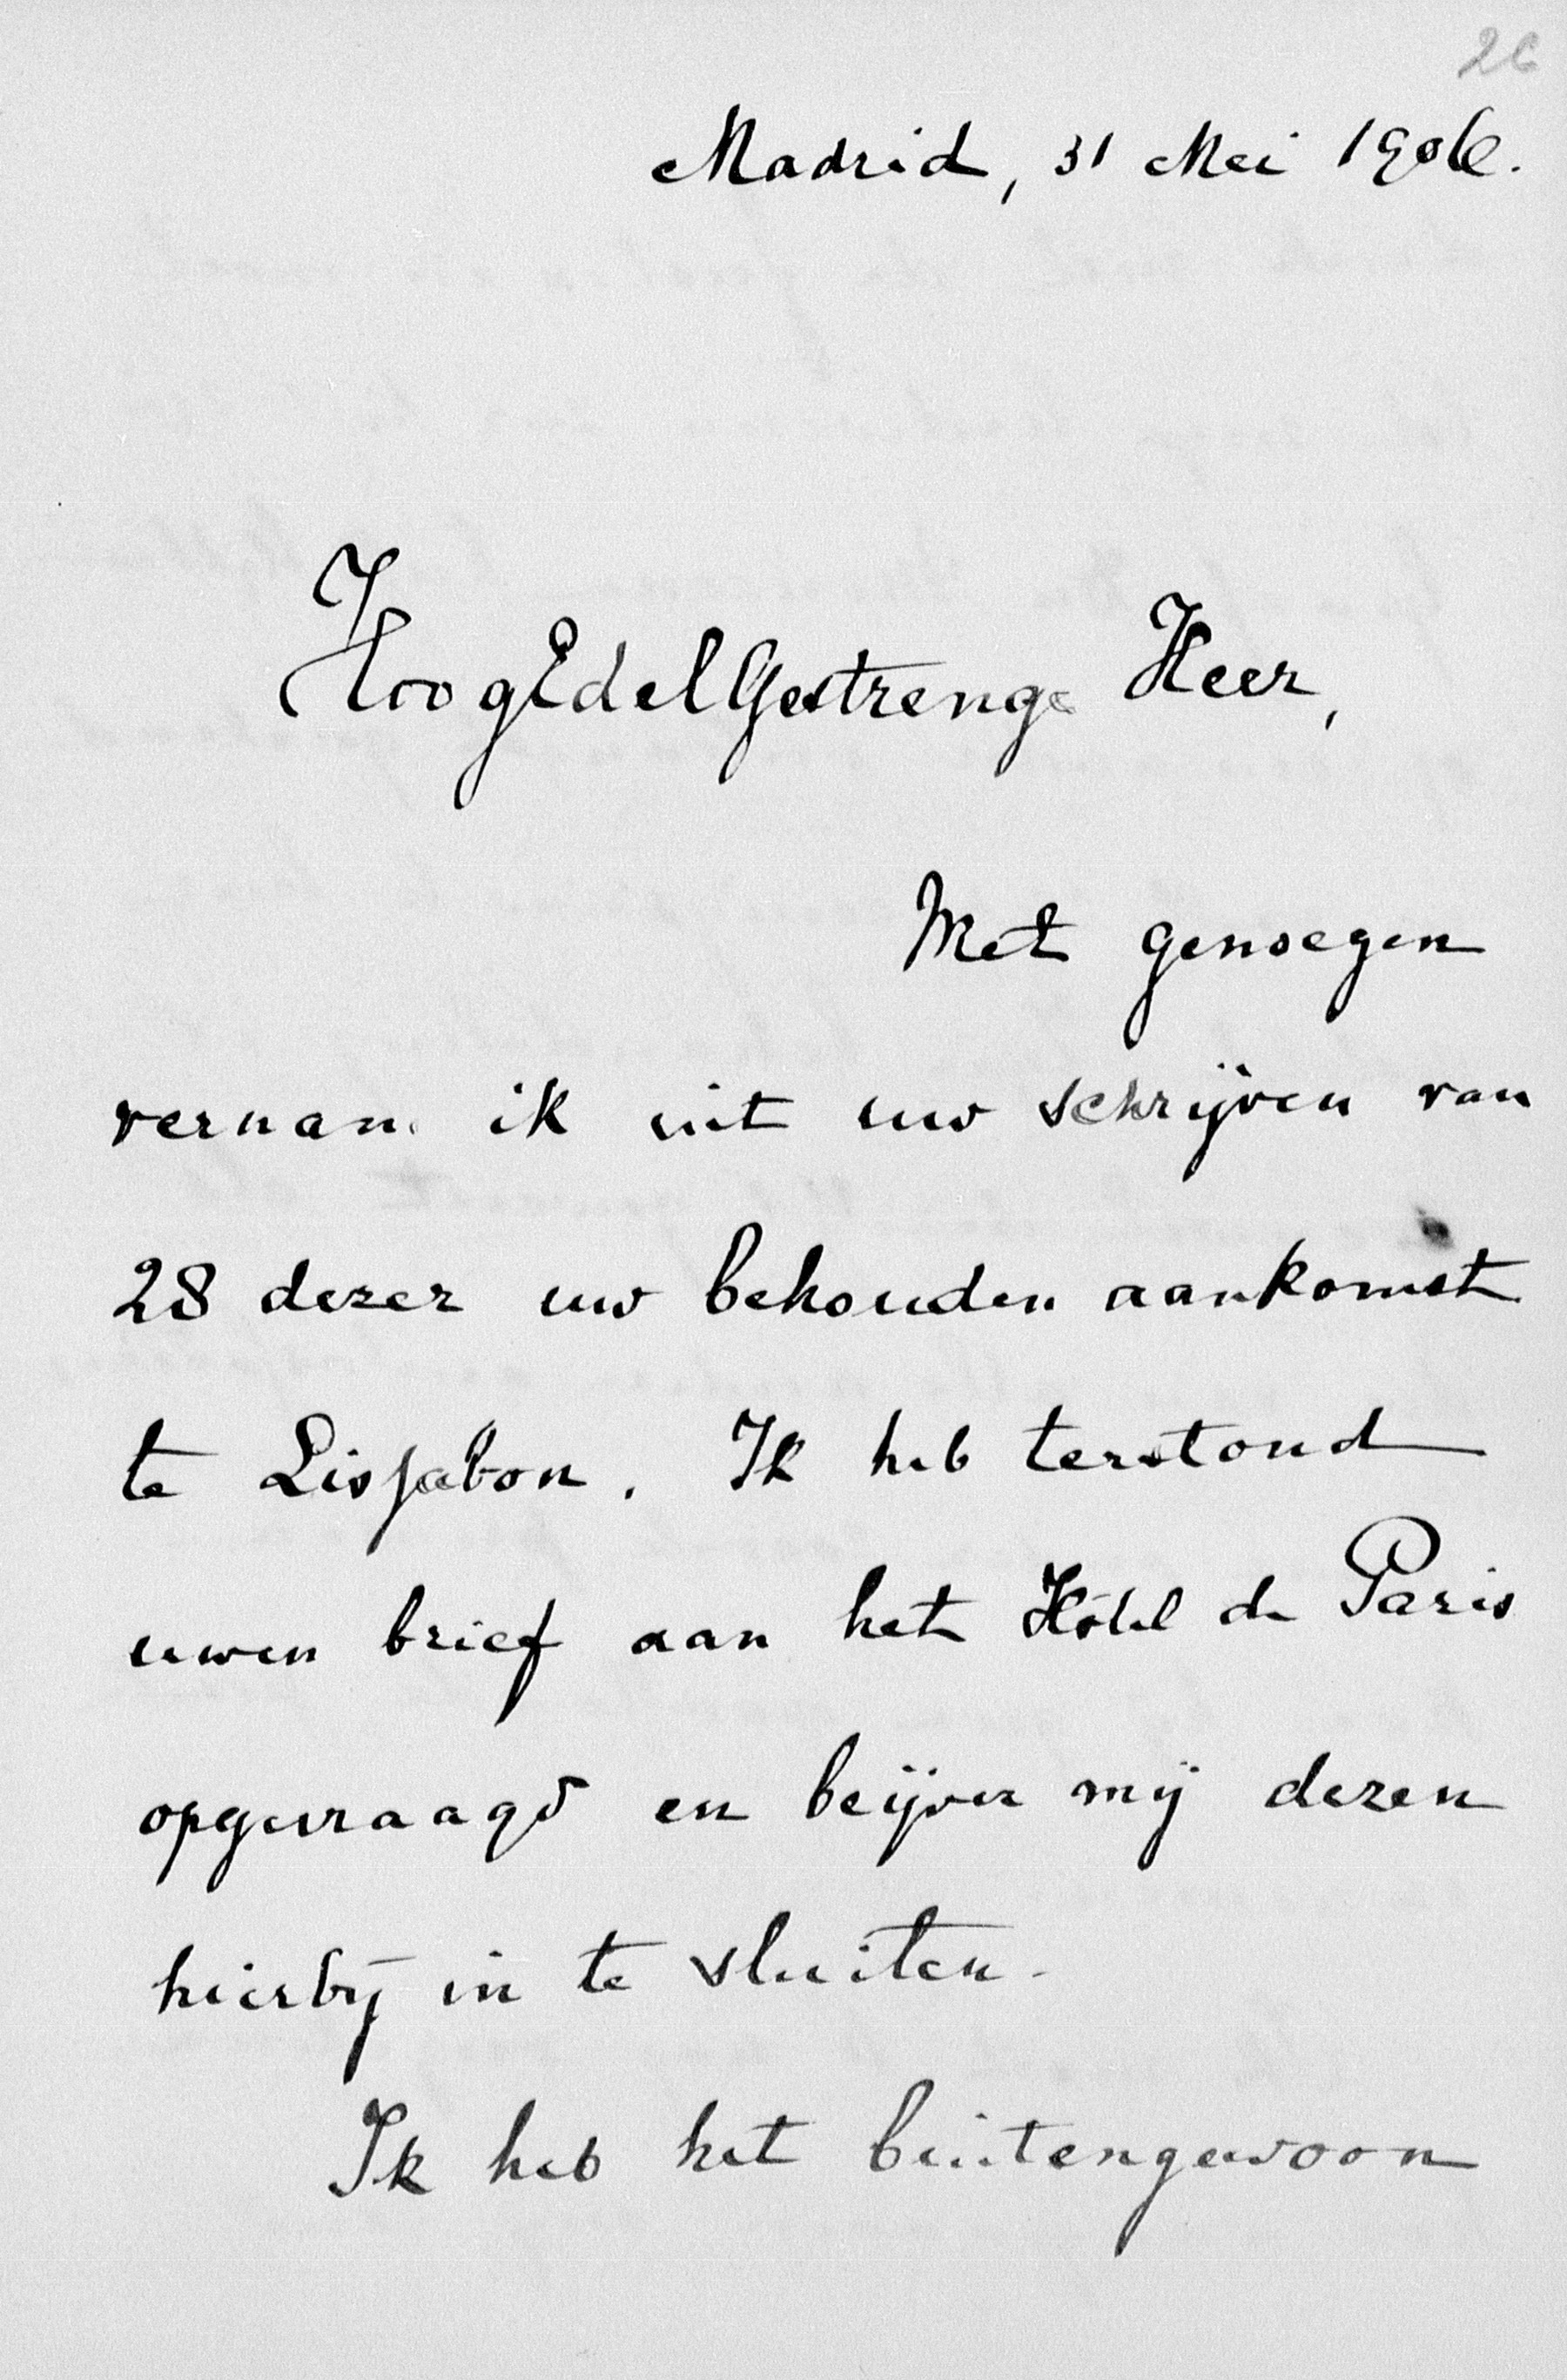 26
Madrid, 31 Mei 1906.
HoogEdelGestrenge Heer,
Met genoegen
vernam ik uit uw schrijven van
28 dezer uw behouden aankomst
te Lissabon. Ik heb terstond
uwen brief aan het Hôtel de Paris
opgevraagd en beijver mij dezen
hierbij in te sluiten.
Ik heb het buitengewoon